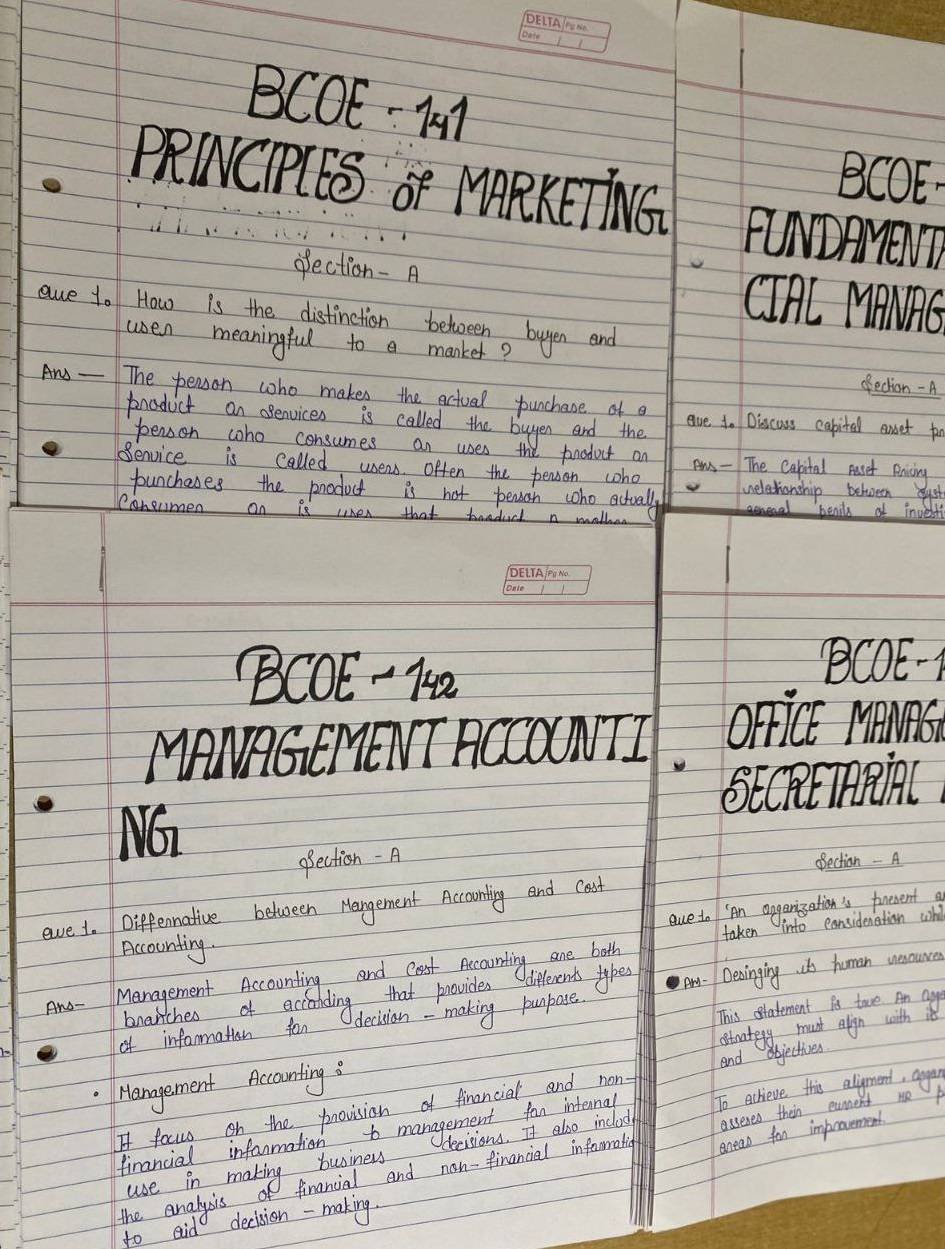 DELTA Pg No.
Date
BCOE - 141
PRINCIPLES OF MARKETING
Section - A
Que 1. How is the distinction between buyer and
user meaningful to a market ?
Ans — The person who makes the actual purchase of a
product or services is called the buyer and the
person who consumes or uses the product or
Service is called users. Often the person who
purchases the product is not person who actually
Consumer or is uses that product a mother
BCOE-
FUNDAMENT
CIAL MANAG
Section - A
Que 1. Discuss capital asset pr
Ans — The Capital Asset Pricing
relationship between syst
general perils of investi
DELTA Pg No.
Date
BCOE - 142
MANAGEMENT ACCOUNTI
NG
Section - A
Que 1. Differnative between Mangement Accounting and Cost
Accounting.
Ans- Management Accounting and Cost Accounting are both
branches of according that provides differents types
of information for decision - making purpose.
• Management Accounting :
It focus on the provision of financial and non-
financial information to management for internal
use in making business decisions. It also includ
the analysis of financial and non-financial informatio
to aid decision - making.
BCOE-1
OFFICE MANAG
SECRETARIAL
Section - A
Que 1. 'An organization's present a
taken into consideration whi
Ans- Desinging its human resources
This statement is true An orga
strategy must align with it
and objectives.
To achieve this aligment, organ
asseses their current HR p
areas for improvement.